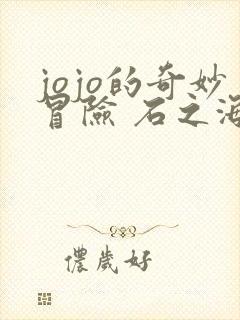 jojo的奇妙
冒險 石之海
儂歲好